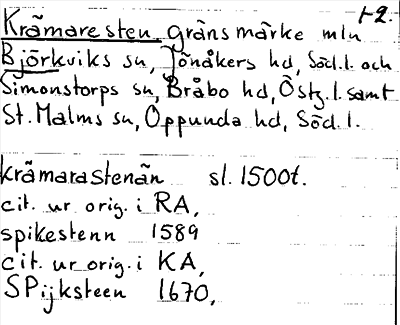 1-2.
Krämaresten, gränsmärke mln
Björkviks sn, Jönåkers hd, Söd.l. och
Simonstorps sn, Bråbo hd, Östg.l. samt
St. Malms sn, Oppunda hd, Söd.l.
krämarastenän sl. 1500t.
cit. ur orig. i RA,
spikestenn 1589
cit. ur orig. i KA,
SPijksteen 1670,